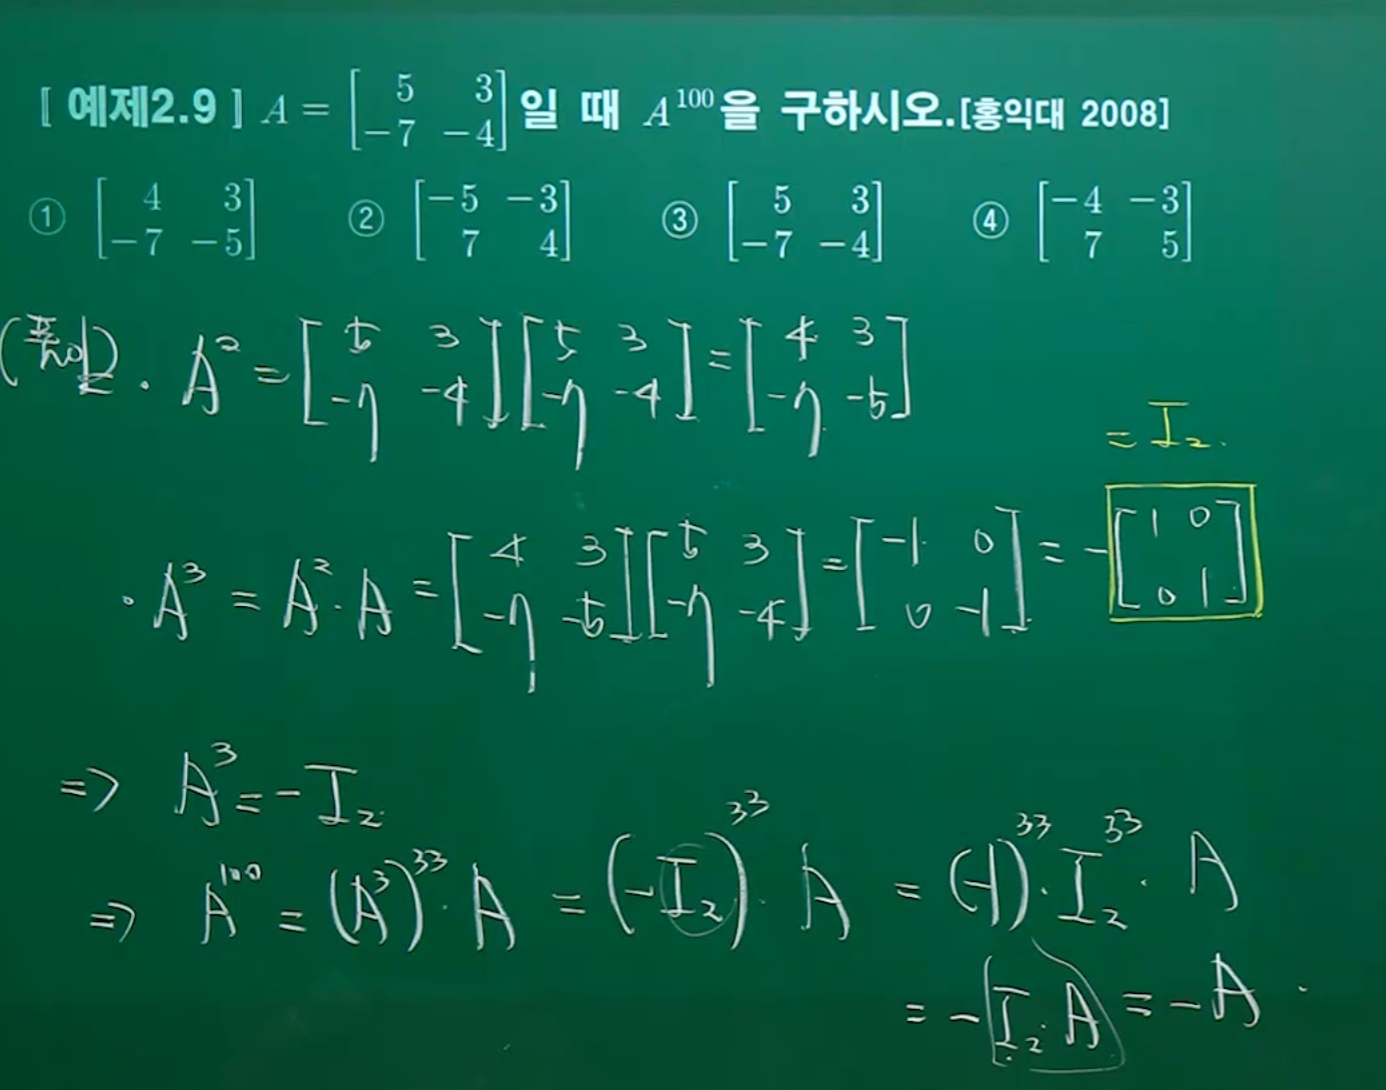 [ 예제2.9 ] A = [5 3; -7 -4] 일 때 A^100을 구하시오.[홍익대 2008]
① [4 3; -7 -5] ② [-5 -3; 7 4] ③ [5 3; -7 -4] ④ [-4 -3; 7 5]
(풀이). A² = [5 3; -7 -4][5 3; -7 -4] = [4 3; -7 -5]
= I₂.
· A³ = A²·A = [4 3; -7 -5][5 3; -7 -4] = [-1 0; 0 -1] = -[1 0; 0 1]
=> A³ = -I₂
=> A^100 = (A³)^33 · A = (-I₂)^33 · A = (-1)^33 · I₂^33 · A
= -I₂·A = -A.